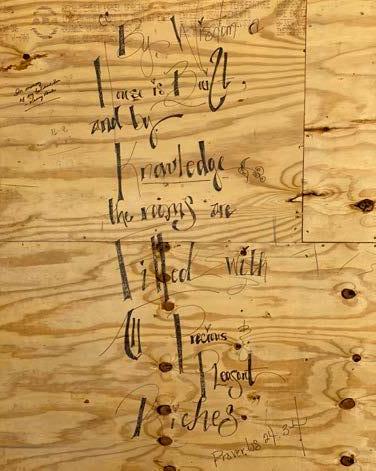 By Wisdom a
House is Built,
and by
Knowledge
the rooms are
Filled with
all Precious &
Pleasant
Riches.
Proverbs 24:3-4